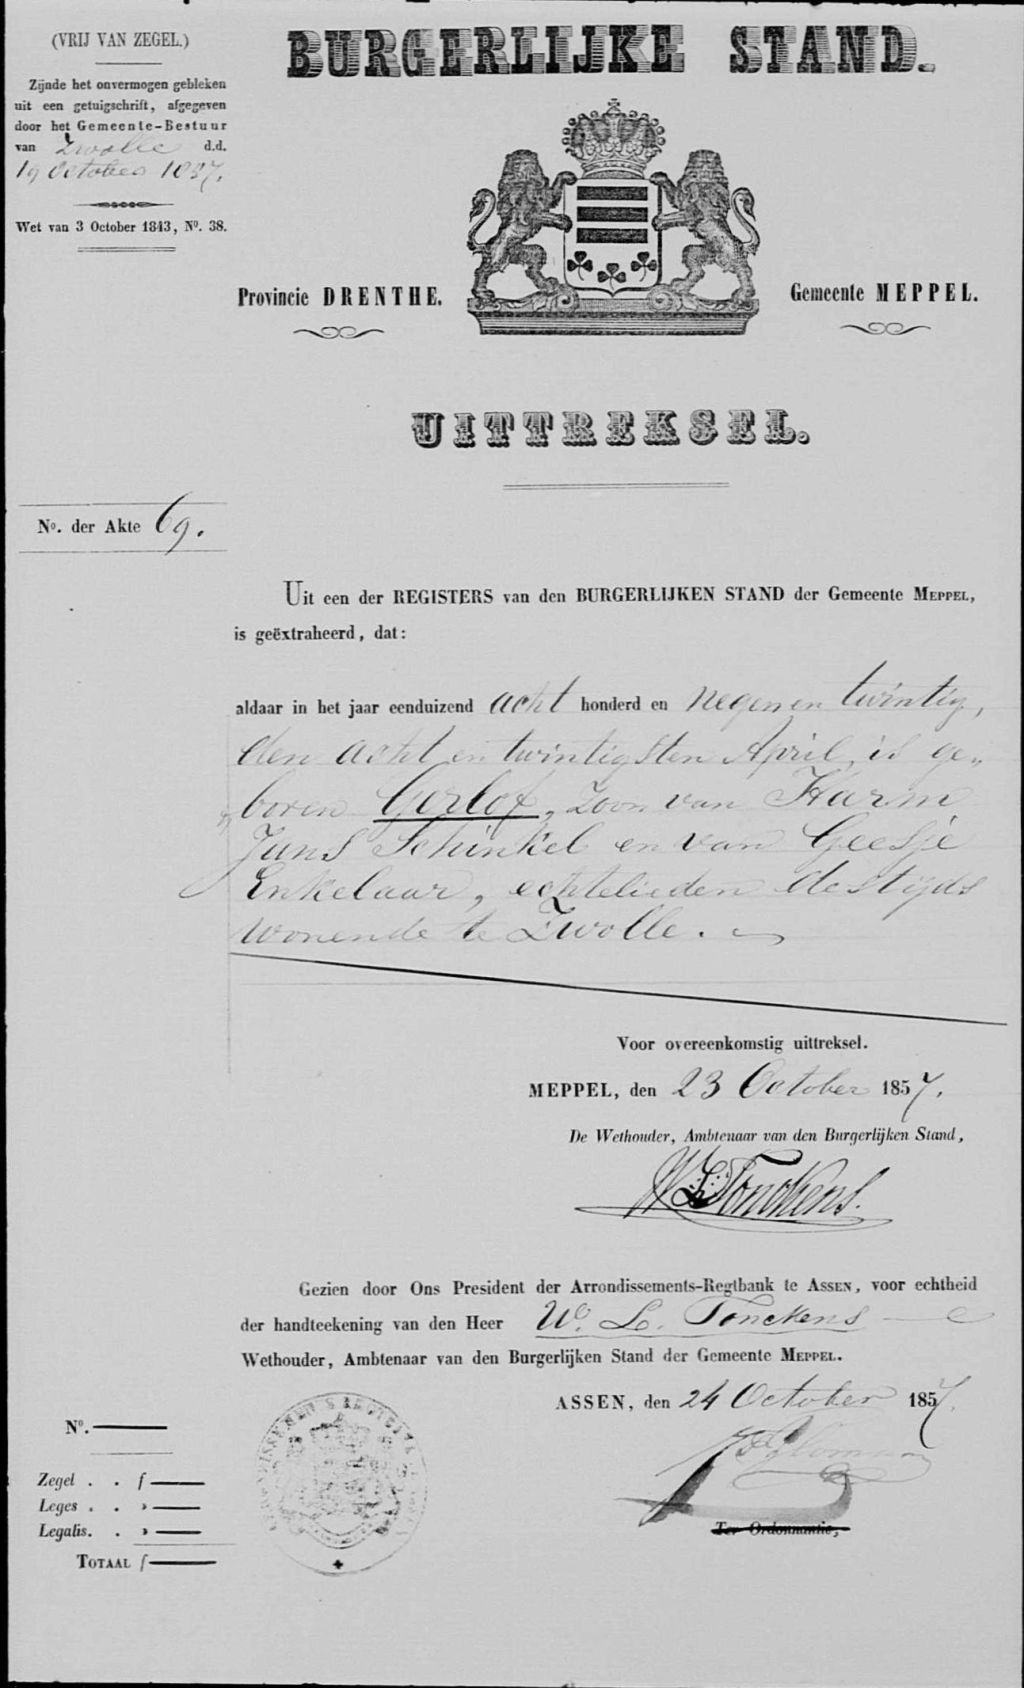 (VRIJ VAN ZEGEL.)
Zijnde het onvermogen gebleken
uit een getuigschrift, afgegeven
door het Gemeente-Bestuur
van Zwolle d.d.
19 October 1857.
Wet van 3 October 1843, No. 38.
BURGERLIJKE STAND.
Provincie DRENTHE.
Gemeente MEPPEL.
UITTREKSEL.
No. der Akte 69.
Uit een der REGISTERS van den BURGERLIJKEN STAND der Gemeente MEPPEL,
is geëxtraheerd, dat:
aldaar in het jaar eenduizend acht honderd en negen en twintig,
den acht en twintigsten April, is ge„
„boren Gerlof, zoon van Harm
Jans Schinkel en van Geesje
Enkelaar, echtelieden destijds
wonende te Zwolle.
Voor overeenkomstig uittreksel.
MEPPEL, den 23 October 1857.
De Wethouder, Ambtenaar van den Burgerlijken Stand,
W L Tonckens.
Gezien door Ons President der Arrondissements-Regtbank te ASSEN, voor echtheid
der handteekening van den Heer W. L. Tonckens
Wethouder, Ambtenaar van den Burgerlijken Stand der Gemeente MEPPEL.
ASSEN, den 24 October 1857.
Ter Ordonnantie,
No.
Zegel . . f
Leges . . »
Legalis. . »
TOTAAL f